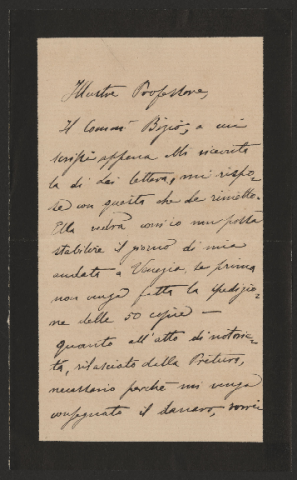 Illustre Professore,
Il Comm.r Bizio, a cui
scrissi appena mi ricevuta
la di Lei lettera, mi rispo-
se con questa che Le rimetto.
Ella vedrà com'io non possa
stabilire il giorno di mia
andata a Venezia, se prima
non venga fatta la spedizio-
ne delle 50 copie —
quanto all'atto di notorie-
tà, rilasciato dalla Pretura,
necessario perché mi venga
consegnato il danaro,